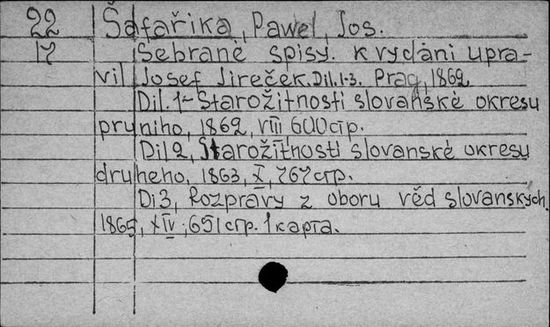 22 Šafařika, Pawel, Jos.
17 Sebranė spisy. k vydáni upra-
vil Josef Jireček. Dil. 1-3. Prag, 1862
Dil. 1 - Starožitnosti slovanskė okresu
prvniho, 1862, VIII 600 стр.
Dil 2, Starožitnosti slovanskė okresu
druheho, 1863, X, 767 стр.
Di 3, Rozpravy z oboru vĕd slovanskych.
1865, XIV, 651 стр. 1 карта.